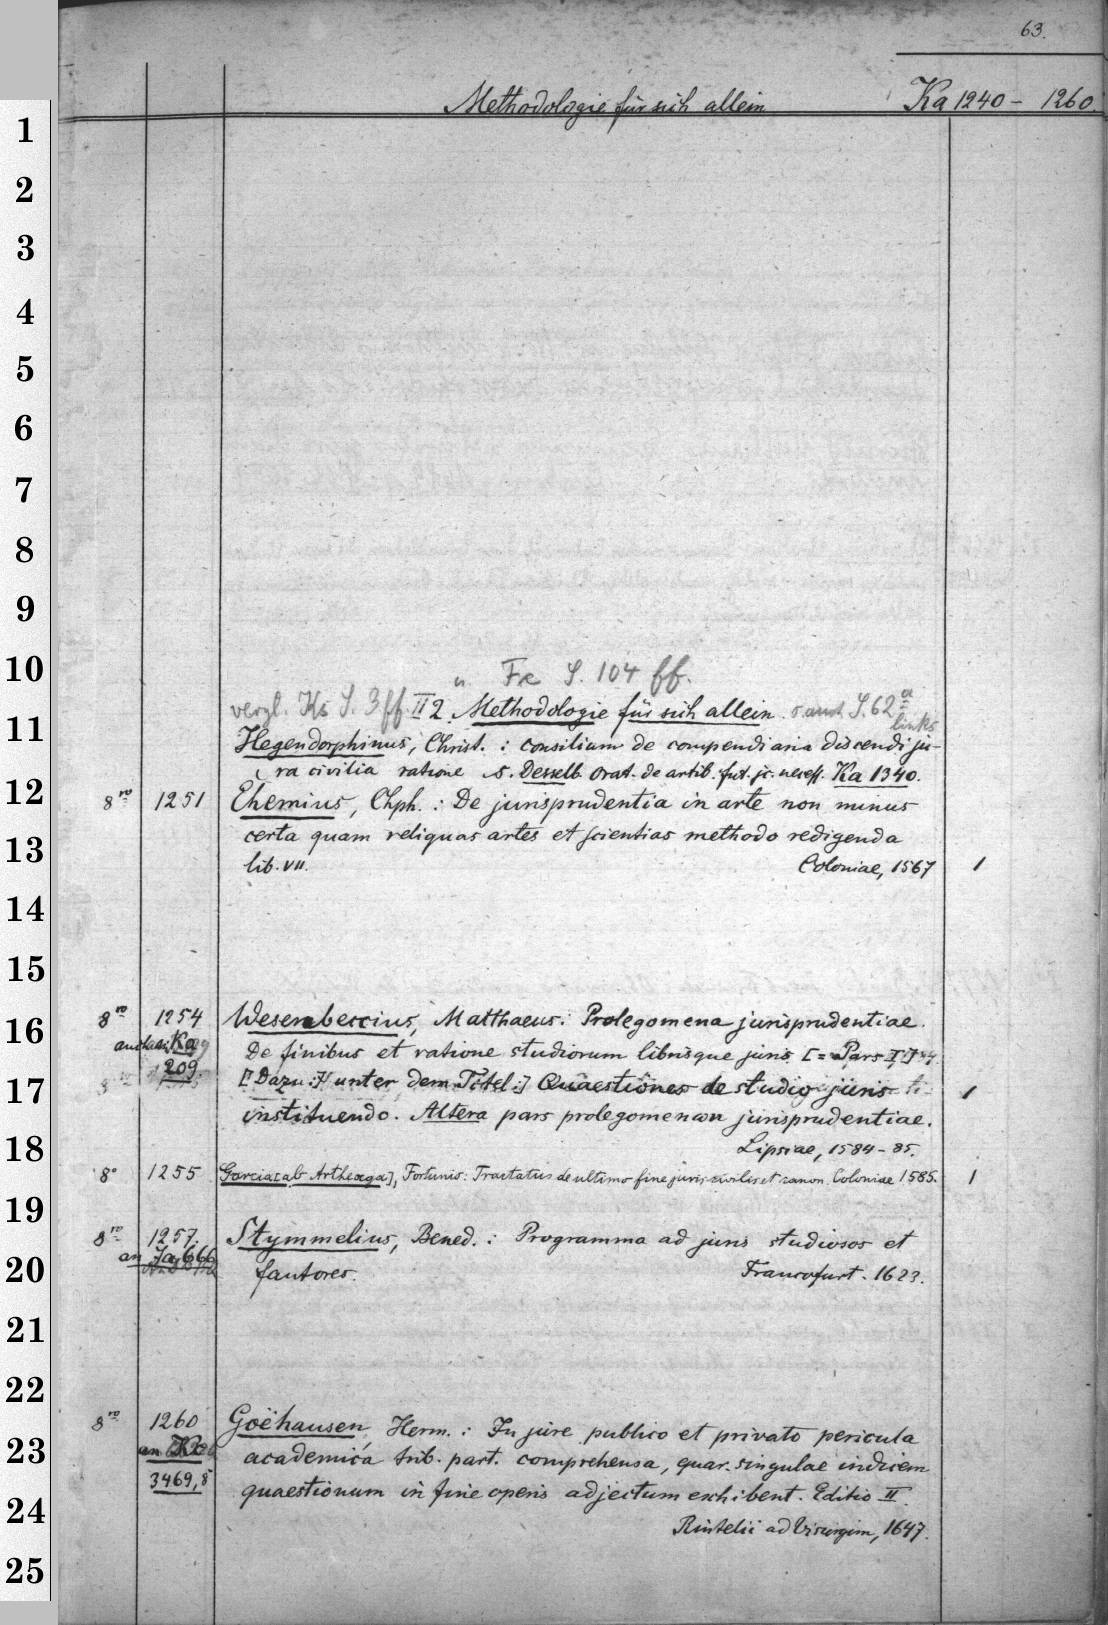 63.
Methodologie für sich allein Ka 1240 - 1260.
1
2
3
4
5
6
7
8
9
10
u. Fe S. 104 ff.
vergl. Ks S. 3 ff. II 2. Methodologie für sich allein. s. auch S. 62 a links
11
Hegendorphinus, Christ. : consilium de compendiaria discendi ju-
ra civilia ratione s. Desselb. Orat. de artib. fut. jc. necess. Ka 1340.
12
8ro 1251 Ehemius, Chph. : De jurisprudentia in arte non minus
certa quam reliquas artes et scientias methodo redigenda
13
lib. VII. Coloniae, 1567 1
14
15
16
8ro 1254 Wesenbeccius, Matthaeus: Prolegomena jurisprudentiae.
Ka De finibus et ratione studiorum librisque juris [= Pars I.]
17
209. [Dazu:] unter dem Titel:] Quaestiones de studio juris 1
instituendo. Altera pars prolegomenωn jurisprudentiae.
18
Lipsiae, 1584-85.
8o 1255 Garcia[ab Artheaga], Fortunis: Tractatus de ultimo fine juris civilis et canon. Coloniae 1585. 1
19
8ro 1257. Stymmelius, Bened. : Programma ad juris studiosos et
20
an Ja 666 fautores. Francofurt. 1623.
21
22
8ro 1260 Goëhausen, Herm. : In jure publico et privato pericula
23
an academica trib. part. comprehensa, quar. singulae indicem
3469,8 quaestionum in fine operis adjectum exhibent. Editio II.
24
Rintelii ad Visurgim, 1647.
25